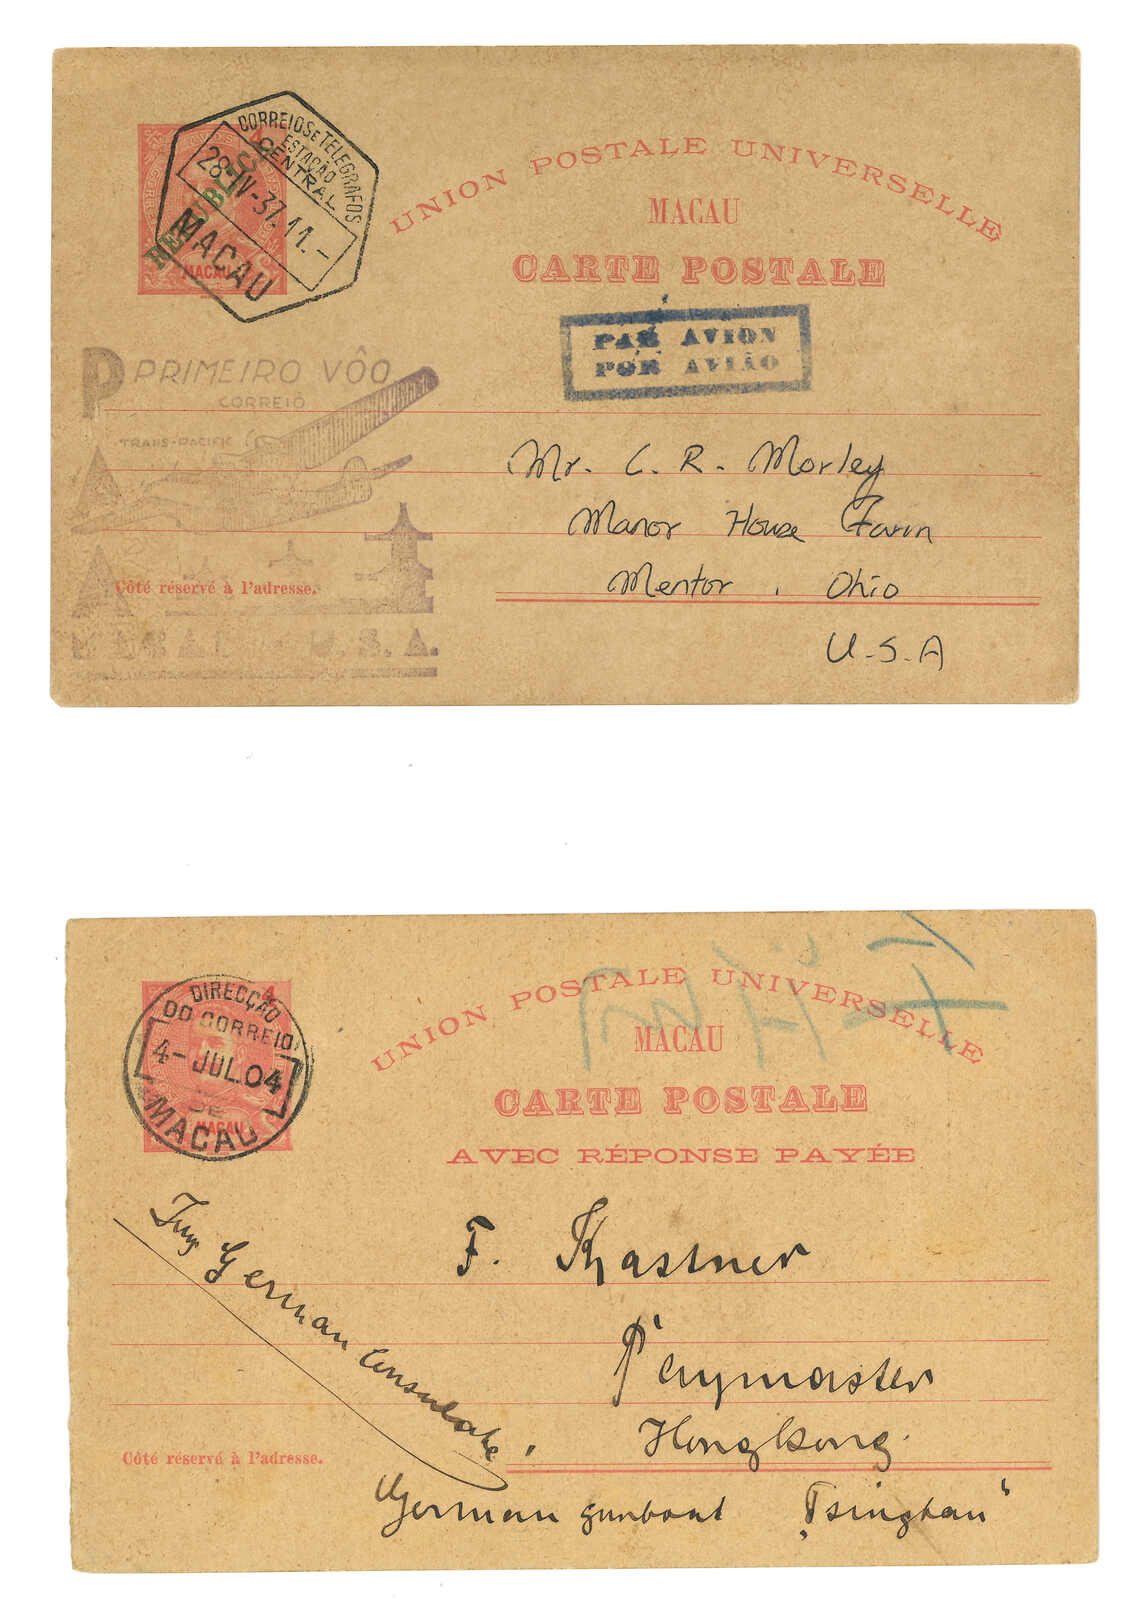 4
REPUBLICA
MACAU
CORREIOS E TELEGRAFOS
ESTAÇÃO
CENTRAL
28-IV-37.11.-
MACAU
UNION POSTALE UNIVERSELLE
MACAU
CARTE POSTALE
PAR AVION
POR AVIÃO
PRIMEIRO VÔO
CORREIO
TRANS-PACIFIC
Mr. C. R. Morley
Manor House Farm
Mentor, Ohio
U.S.A
Côté réservé à l'adresse.
U.S.A.
4
MACAU
DIRECÇÃO
DO CORREIO
4-JUL.04
DE
MACAU
UNION POSTALE UNIVERSELLE
MACAU
CARTE POSTALE
AVEC RÉPONSE PAYÉE
F. Kastner
Paymaster
Hongkong.
German gunboat „Tsingtau"
German Consulate
Côté réservé à l'adresse.